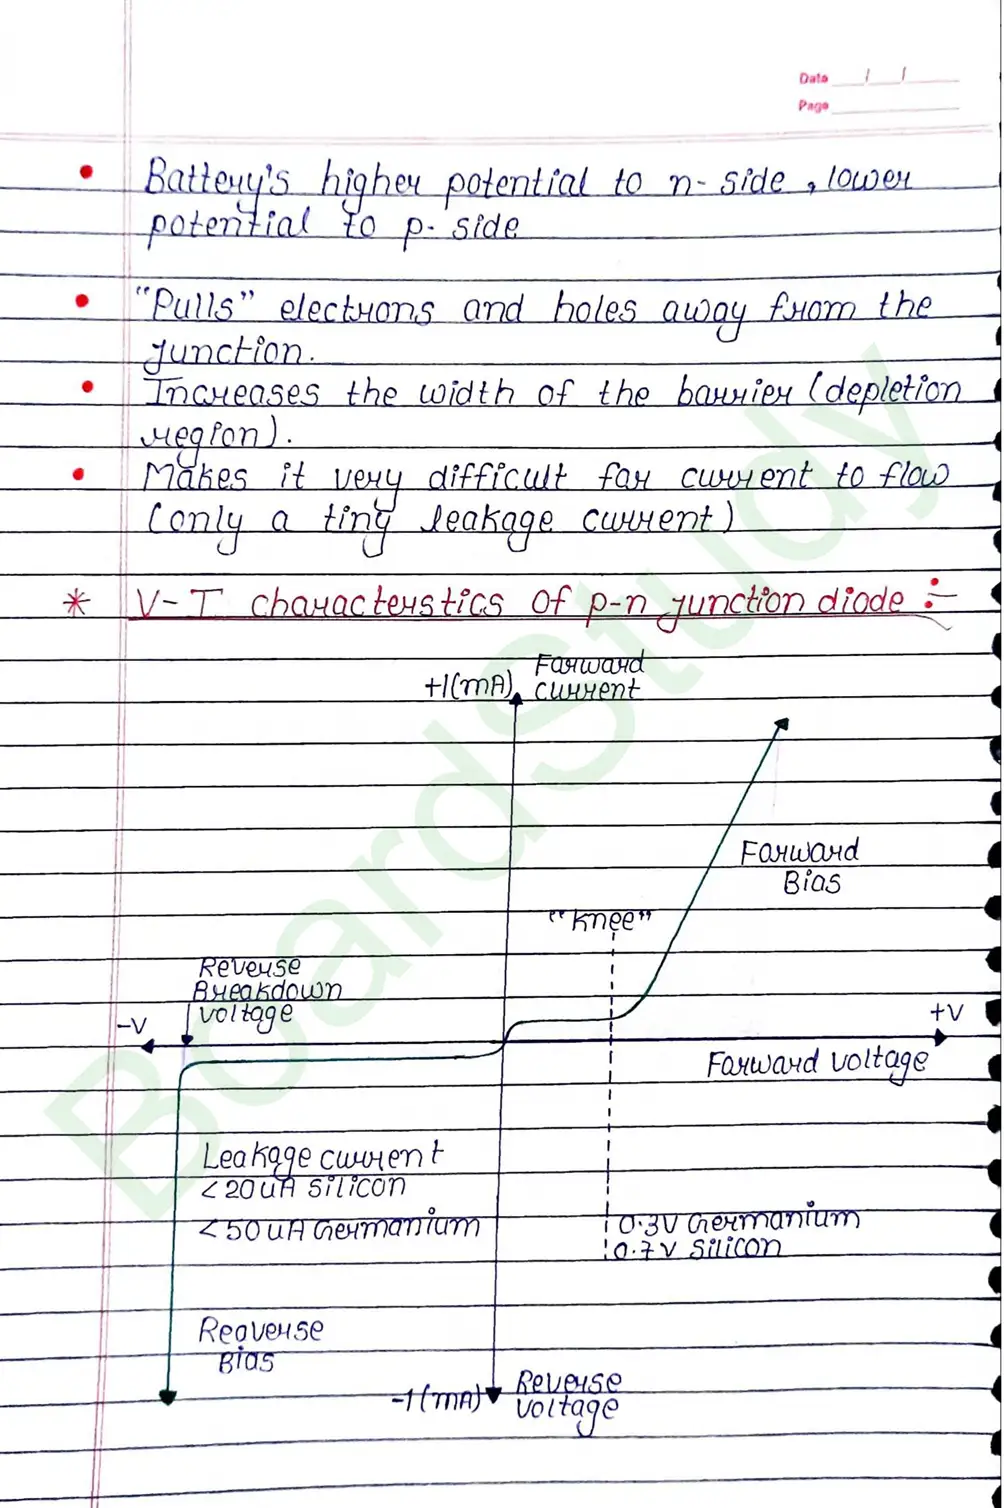 Date
Page
• Battery's higher potential to n-side, lower
potential to p-side
• "Pulls" electrons and holes away from the
junction.
• Increases the width of the barrier (depletion
region).
• Makes it very difficult for current to flow
(only a tiny leakage current)
* V-I characterstics of p-n junction diode :-
+I(mA) Forward
current
Forward
Bias
"Knee"
Reverse
Breakdown
voltage
-V
+V
Forward voltage
Leakage current
<20uA silicon
<50uA Germanium
0.3V Germanium
0.7V silicon
Reaverse
Bias
-1(mA) Reverse
voltage
BoardStudy